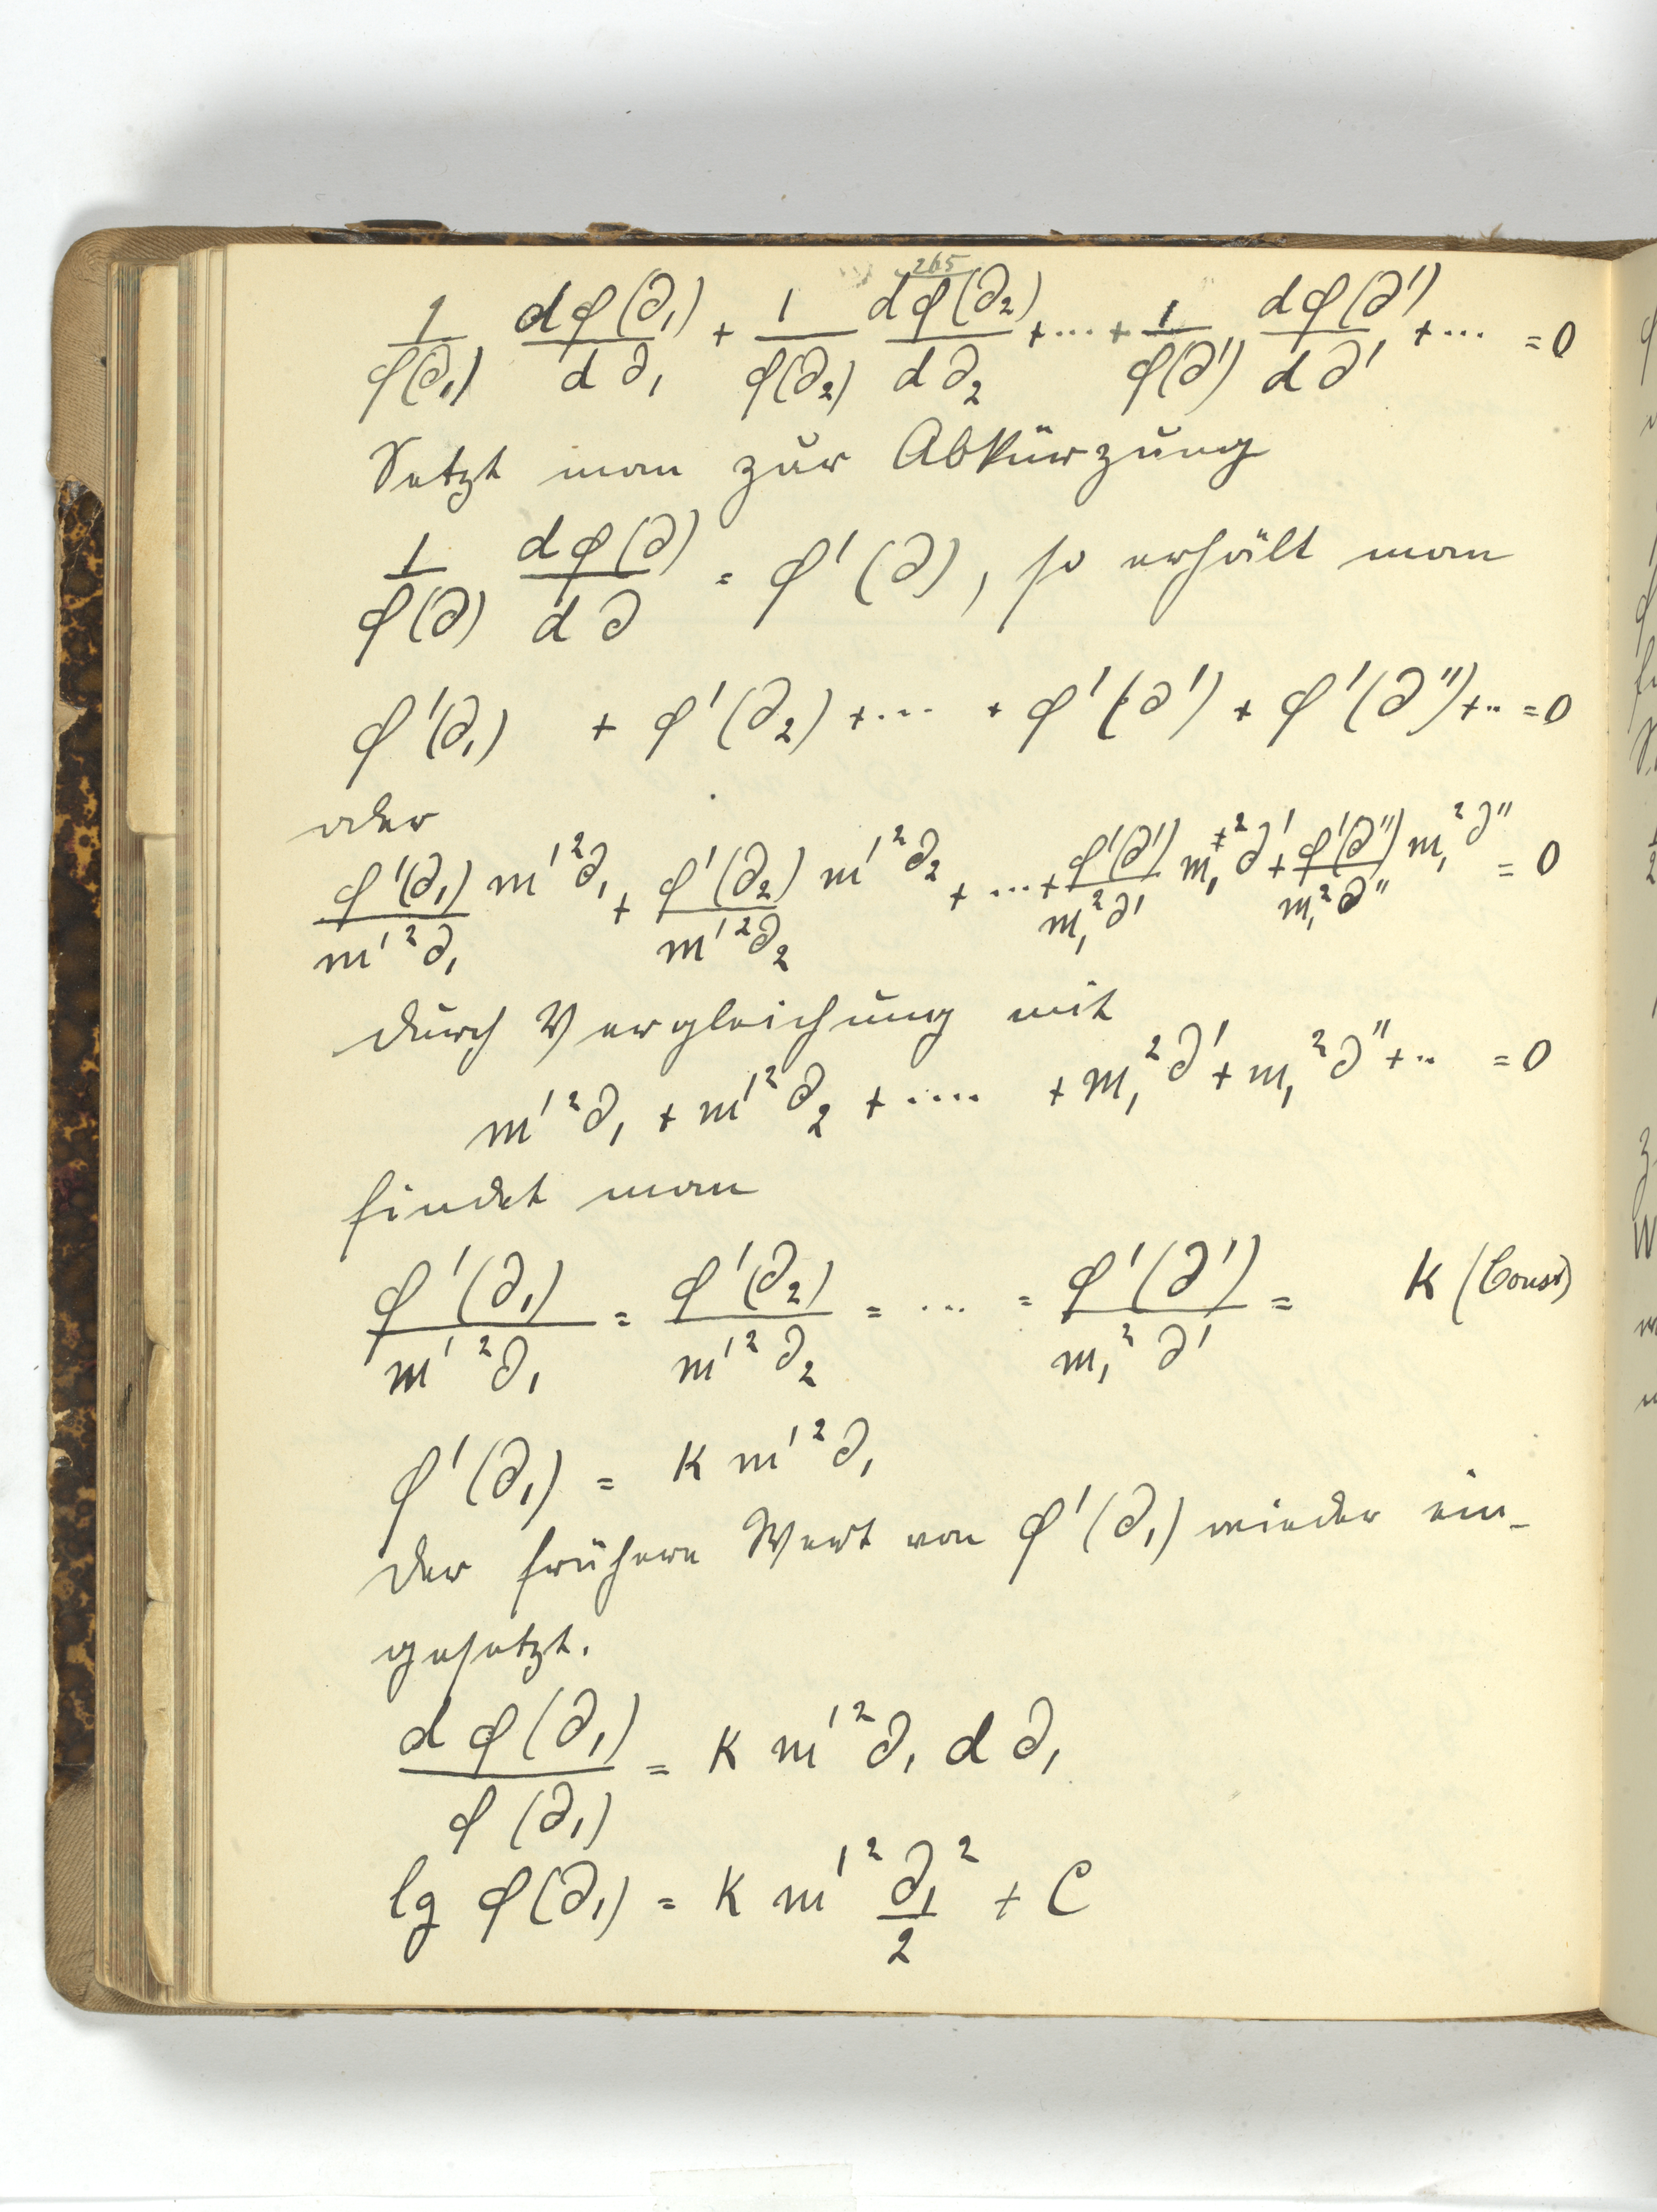 265
1/φ(∂₁) dφ(∂₁)/d∂₁ + 1/φ(∂₂) dφ(∂₂)/d∂₂ + ... + 1/φ(∂') dφ(∂')/d∂' + ... = 0
Setzt man zur Abkürzung
1/φ(∂) dφ(∂)/d∂ = φ'(∂), so erhält man
φ'(∂₁) + φ'(∂₂) + ... + φ'(∂') + φ'(∂'') + .. = 0
oder
φ'(∂₁)/m'²∂₁ m'²∂₁ + φ'(∂₂)/m'²∂₂ m'²∂₂ + ... + φ'(∂')/m₁²∂' m₁²∂' + φ'(∂'')/m₁²∂'' m₁²∂'' = 0
durch Vergleichung mit
m'²∂₁ + m'²∂₂ + .... + m₁²∂' + m₁²∂'' + .. = 0
findet man
φ'(∂₁)/m'²∂₁ = φ'(∂₂)/m'²∂₂ = ... = φ'(∂')/m₁²∂' = K (Const)
φ'(∂₁) = K m'²∂₁
der frühere Wert von φ'(∂₁) wieder ein-
gesetzt.
dφ(∂₁)/φ(∂₁) = K m'²∂₁ d∂₁
lg φ(∂₁) = K m'² ∂₁²/2 + C